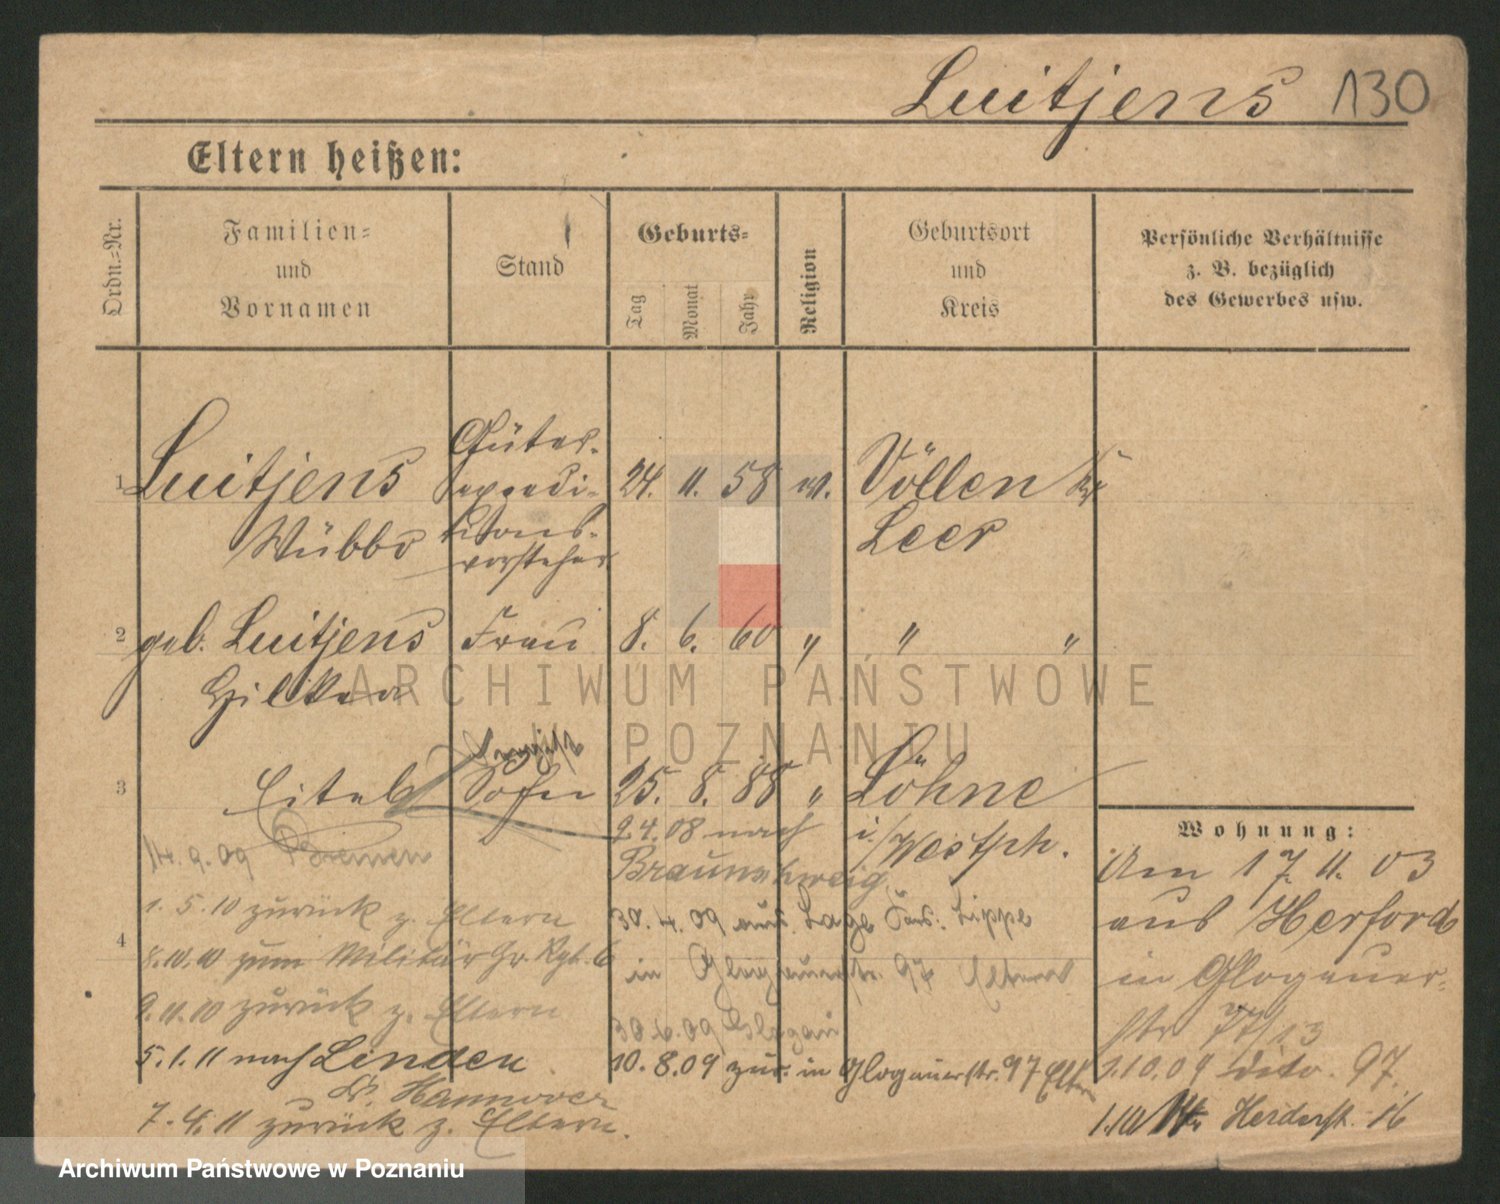 Luitjens 130
Eltern heißen:
Ordn.-Nr.
Familien-
und
Vornamen
Stand
Geburts-
Tag
Monat
Jahr
Religion
Geburtsort
und
Kreis
Persönliche Verhältnisse
z. B. bezüglich
des Gewerbes usw.
1 Luitjens
Wübbo
Güter-
expedi-
tions-
vorsteher
24. 11. 58 ev. Völlen Kr.
Leer
2 geb. Luitjens Frau 8. 6. 60 " " "
Hilkea
3 Eitel Sohn 25. 8. 88 " Löhne
i/Westph.
2.4.08 nach
Braunschweig
14.9.09 Bremen
1.5.10 zurück z. Eltern
30.4.09 aus Lage Lippe
4
8.10.10 zum Militär Gr. Rgt. 6
in Glogauerstr. 97 Eltern
9.11.10 zurück z. Eltern
30.6.09 Glogau
5.1.11 nach Linden
b. Hannover
10.8.09 zur. in Glogauerstr. 97 Eltern
7.4.11 zurück z. Eltern.
Wohnung:
Am 17.11.03
aus Herford
in Glogauer-
str
1.10.09 dito. 97.
Herderstr. 16
ARCHIWUM PAŃSTWOWE
W POZNANIU
Archiwum Państwowe w Poznaniu